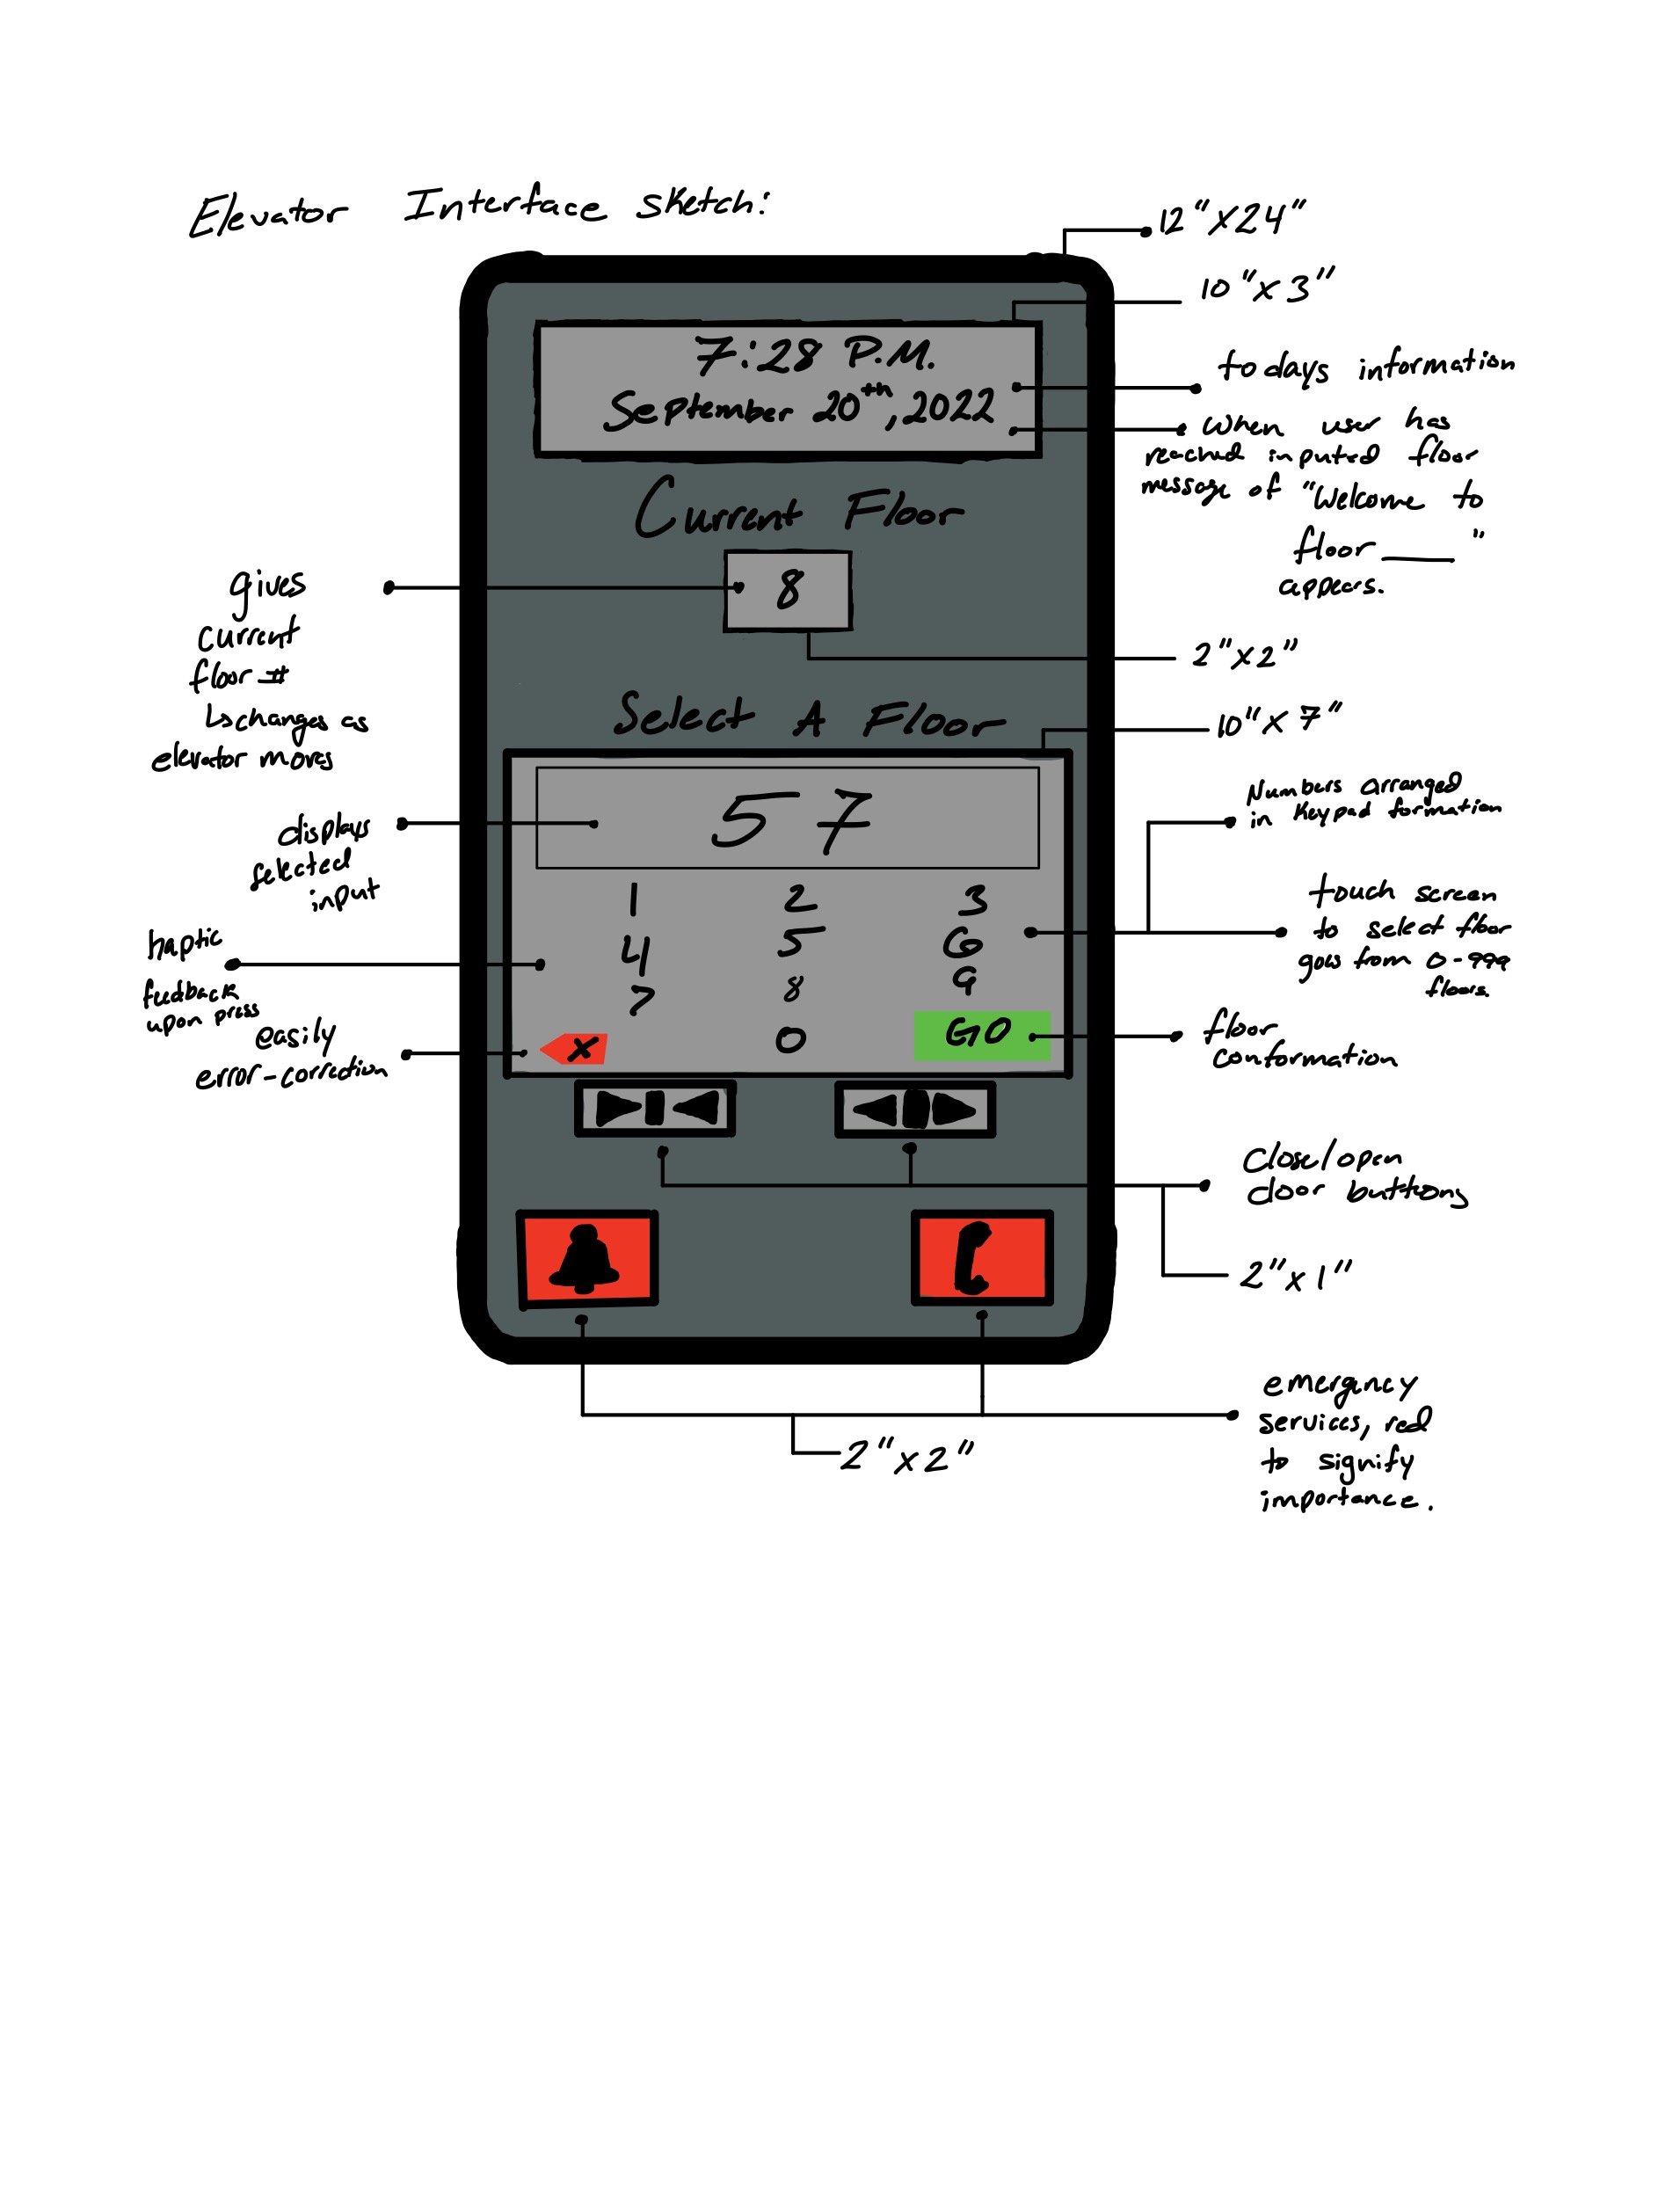 Elevator Interface sketch:
12"x24"
10"x3"
7:28 P.M.
September 20th, 2022
todays information
when user has
reached inputed floor
message of "Welcome to
floor ______"
appears.
Current Floor
8
gives
current
floor #
↳changes as
elevator moves
2"x2"
Select A Floor
10"x7"
57
displays
selected
input
Numbers arranged
in keypad formation
1 2 3
4 5 6
7 8 9
X 0 GO
touch screen
to select floor
goes from 0-999
floors.
haptic
feedback
upon press
easily
error-correction
floor
conformation
Close/open
door buttons
2"x1"
emergency
services, red
to signify
importance.
2"x2"